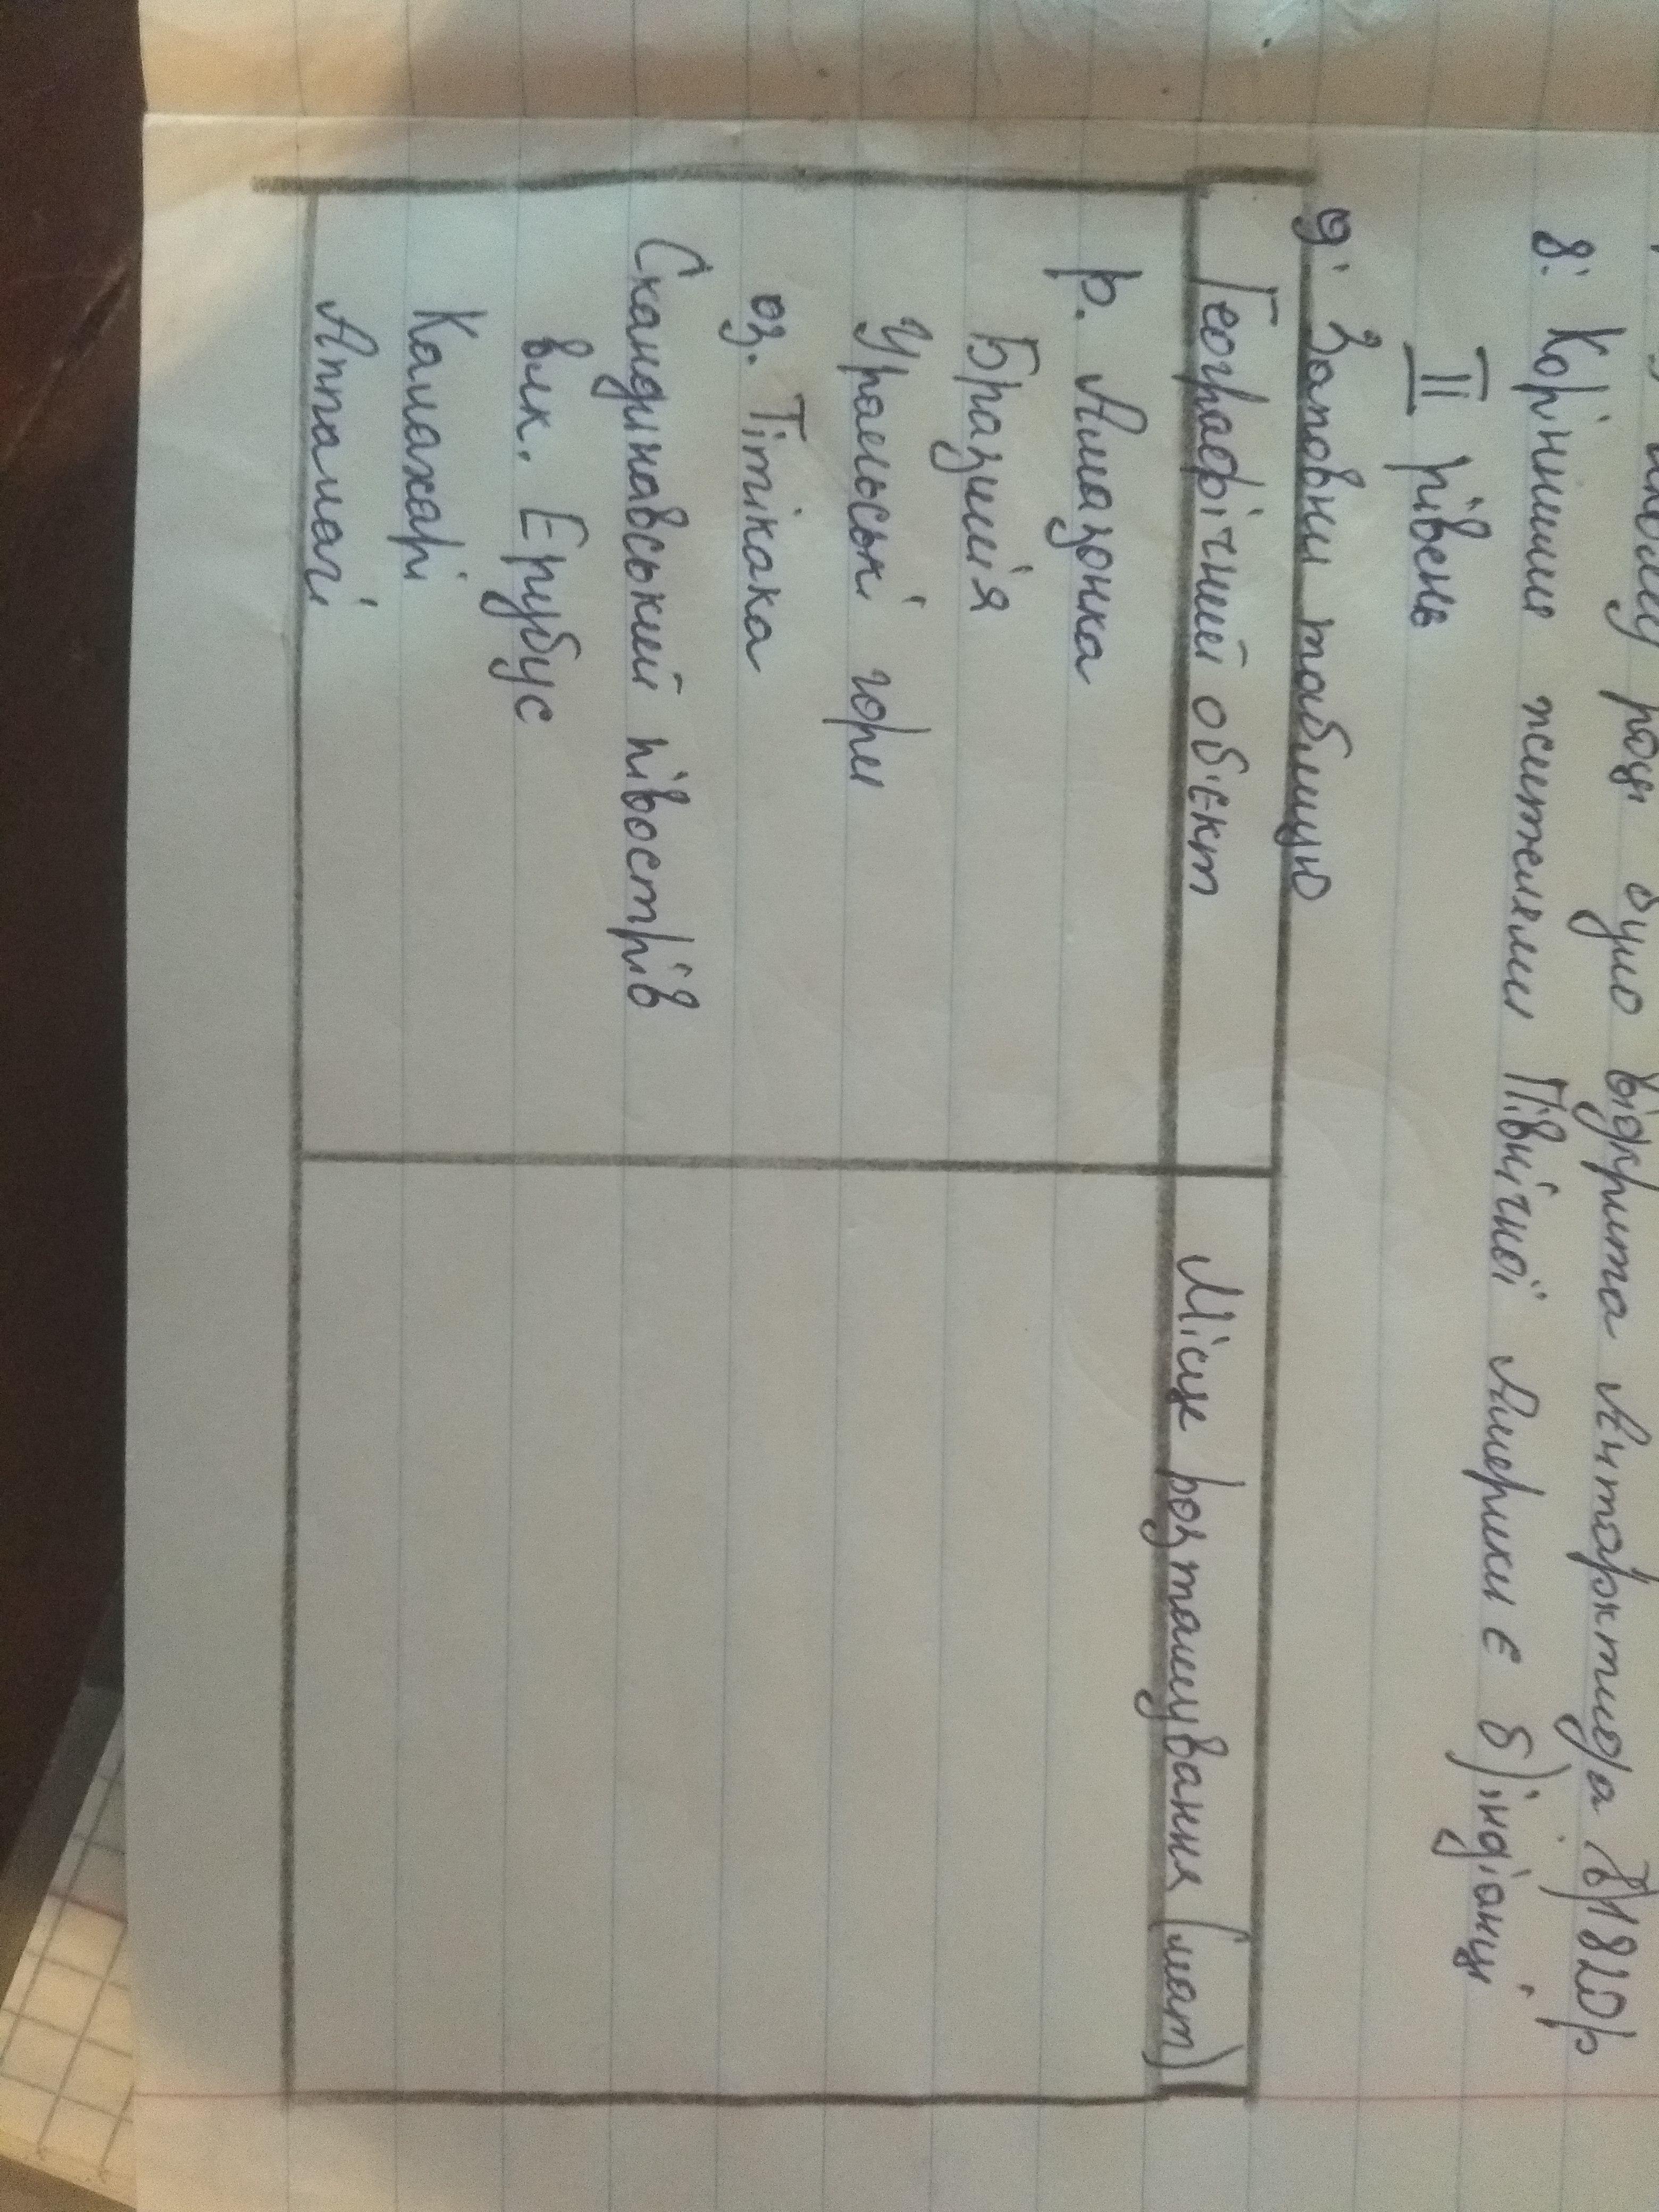 якому році було відкрита Антарктида в) 1820р
8. Корінними жителями Північної Америки є б) індіанці
II рівень
9. Заповни таблицю
Географічний об'єкт Місце розташування (мат)
р. Амазонка
Бразилія
Уральські гори
оз. Тітікака
Скандинавський півострів
влк. Еребус
Калахарі
Аппалачі